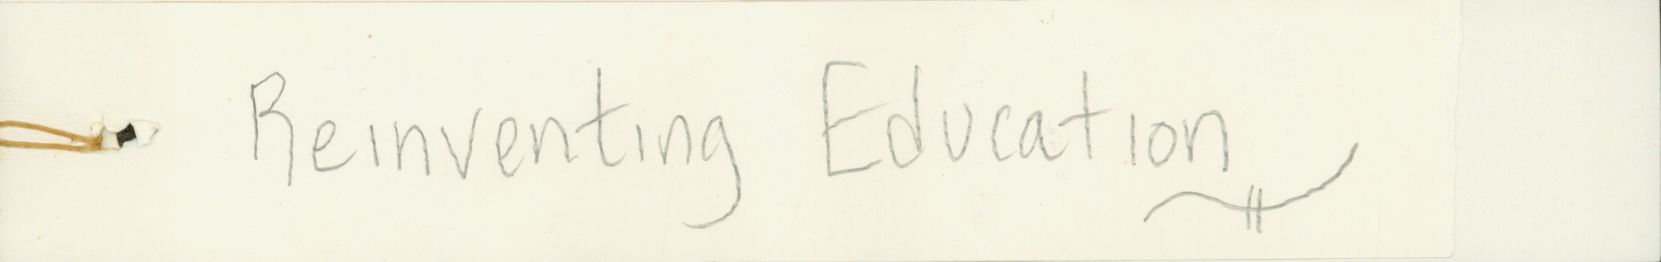 Reinventing Education